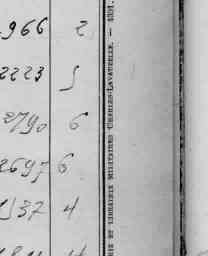 966 2
2223 5
2790 6
2697 6
1937 4
ET LIBRAIRIE MILITAIRES CHARLES-LAVAUZELLE. —